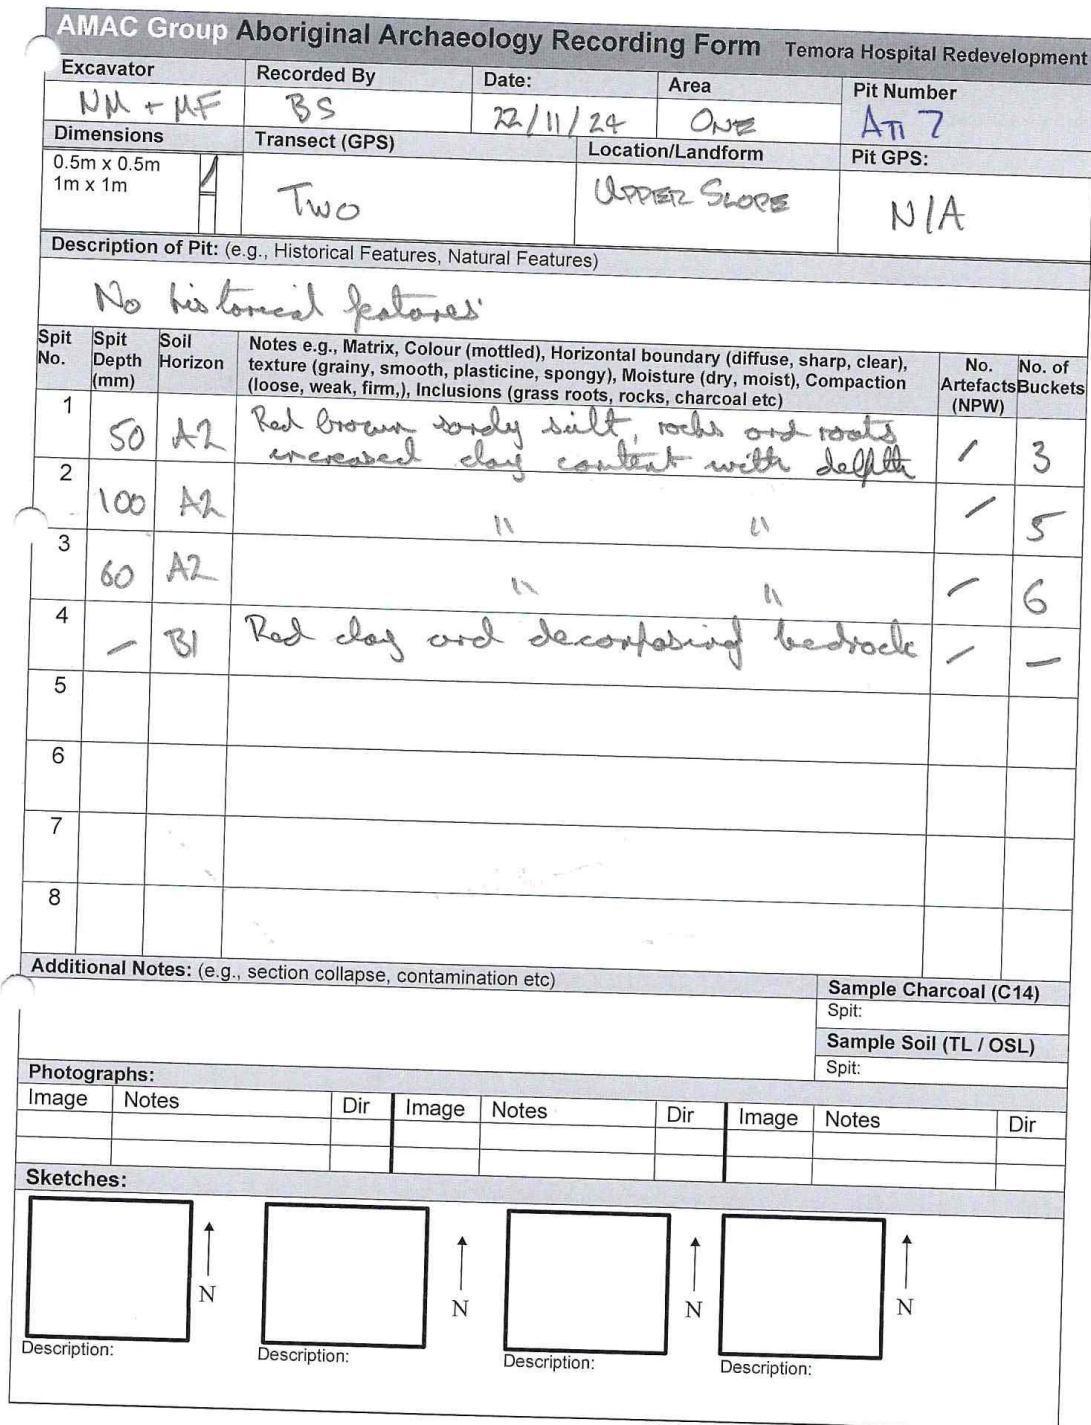 AMAC Group Aboriginal Archaeology Recording Form Temora Hospital Redevelopment
Excavator Recorded By Date: Area Pit Number
NM + MF BS 22/11/24 ONE ATT 7
Dimensions Transect (GPS) Location/Landform Pit GPS:
0.5m x 0.5m /
1m x 1m
TWO UPPER SLOPE N/A
Description of Pit: (e.g., Historical Features, Natural Features)
No historical features
Spit No. Spit Depth (mm) Soil Horizon Notes e.g., Matrix, Colour (mottled), Horizontal boundary (diffuse, sharp, clear), texture (grainy, smooth, plasticine, spongy), Moisture (dry, moist), Compaction (loose, weak, firm,), Inclusions (grass roots, rocks, charcoal etc) No. Artefacts (NPW) No. of Buckets
1 50 A2 Red brown sandy silt, rocks and roots
increased clay content with depth / 3
2 100 A2 " " / 5
3 60 A2 " " / 6
4 - B1 Red clay and decomposing bedrock / -
5
6
7
8
Additional Notes: (e.g., section collapse, contamination etc) Sample Charcoal (C14)
Spit:
Sample Soil (TL / OSL)
Spit:
Photographs:
Image Notes Dir Image Notes Dir Image Notes Dir
Sketches:
N N N N
Description: Description: Description: Description: